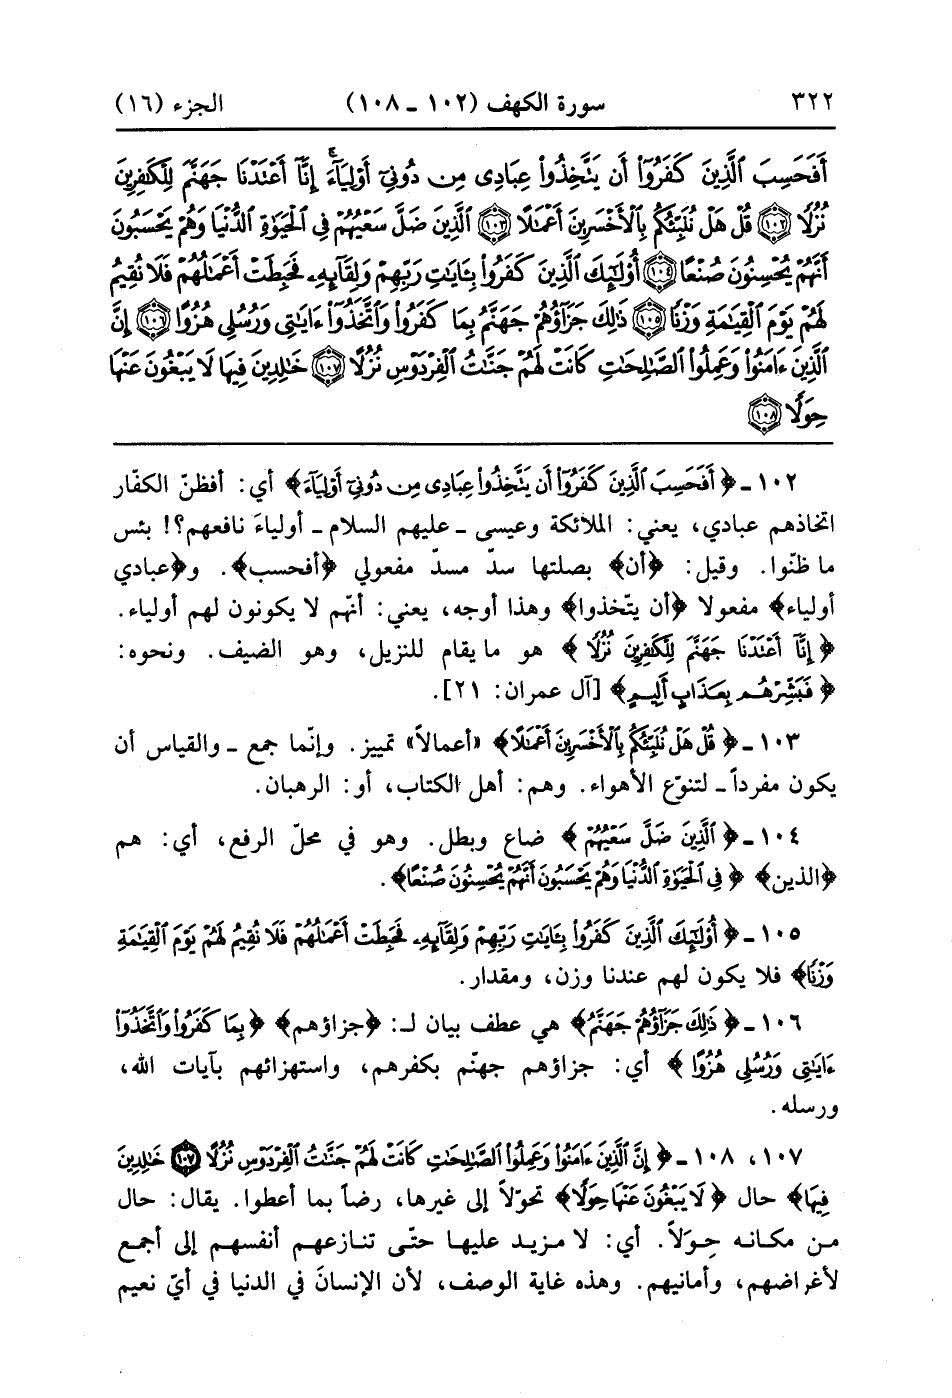 ٣٢٢ سورة الكهف (١٠٢ ـ ١٠٨) الجزء (١٦)
أَفَحَسِبَ ٱلَّذِينَ كَفَرُوٓا۟ أَن يَتَّخِذُوا۟ عِبَادِى مِن دُونِىٓ أَوْلِيَآءَ ۚ إِنَّآ أَعْتَدْنَا جَهَنَّمَ لِلْكَٰفِرِينَ
نُزُلًا ﴿١٠٢﴾ قُلْ هَلْ نُنَبِّئُكُم بِٱلْأَخْسَرِينَ أَعْمَٰلًا ﴿١٠٣﴾ ٱلَّذِينَ ضَلَّ سَعْيُهُمْ فِى ٱلْحَيَوٰةِ ٱلدُّنْيَا وَهُمْ يَحْسَبُونَ
أَنَّهُمْ يُحْسِنُونَ صُنْعًا ﴿١٠٤﴾ أُو۟لَٰٓئِكَ ٱلَّذِينَ كَفَرُوا۟ بِـَٔايَٰتِ رَبِّهِمْ وَلِقَآئِهِۦ فَحَبِطَتْ أَعْمَٰلُهُمْ فَلَا نُقِيمُ
لَهُمْ يَوْمَ ٱلْقِيَٰمَةِ وَزْنًا ﴿١٠٥﴾ ذَٰلِكَ جَزَآؤُهُمْ جَهَنَّمُ بِمَا كَفَرُوا۟ وَٱتَّخَذُوٓا۟ ءَايَٰتِى وَرُسُلِى هُزُوًا ﴿١٠٦﴾ إِنَّ
ٱلَّذِينَ ءَامَنُوا۟ وَعَمِلُوا۟ ٱلصَّٰلِحَٰتِ كَانَتْ لَهُمْ جَنَّٰتُ ٱلْفِرْدَوْسِ نُزُلًا ﴿١٠٧﴾ خَٰلِدِينَ فِيهَا لَا يَبْغُونَ عَنْهَا
حِوَلًا ﴿١٠٨﴾
١٠٢ ـ ﴿أَفَحَسِبَ ٱلَّذِينَ كَفَرُوٓا۟ أَن يَتَّخِذُوا۟ عِبَادِى مِن دُونِىٓ أَوْلِيَآءَ﴾ أي: أفظنّ الكفّار
اتخاذهم عبادي، يعني: الملائكة وعيسى ـ عليهم السلام ـ أولياءَ نافعهم؟! بئس
ما ظنّوا. وقيل: ﴿أن﴾ بصلتها سدّ مسدّ مفعولي ﴿أفحسب﴾. و﴿عبادي
أولياء﴾ مفعولا ﴿أن يتّخذوا﴾ وهذا أوجه، يعني: أنّهم لا يكونون لهم أولياء.
﴿إِنَّآ أَعْتَدْنَا جَهَنَّمَ لِلْكَٰفِرِينَ نُزُلًا﴾ هو ما يقام للنزيل، وهو الضيف. ونحوه:
﴿فَبَشِّرْهُم بِعَذَابٍ أَلِيمٍ﴾ [آل عمران: ٢١].
١٠٣ ـ ﴿قُلْ هَلْ نُنَبِّئُكُم بِٱلْأَخْسَرِينَ أَعْمَٰلًا﴾ «أعمالاً» تمييز. وإنّما جمع ـ والقياس أن
يكون مفرداً ـ لتنوّع الأهواء. وهم: أهل الكتاب، أو: الرهبان.
١٠٤ ـ ﴿ٱلَّذِينَ ضَلَّ سَعْيُهُمْ﴾ ضاع وبطل. وهو في محلّ الرفع، أي: هم
﴿الذين﴾ ﴿فِى ٱلْحَيَوٰةِ ٱلدُّنْيَا وَهُمْ يَحْسَبُونَ أَنَّهُمْ يُحْسِنُونَ صُنْعًا﴾.
١٠٥ ـ ﴿أُو۟لَٰٓئِكَ ٱلَّذِينَ كَفَرُوا۟ بِـَٔايَٰتِ رَبِّهِمْ وَلِقَآئِهِۦ فَحَبِطَتْ أَعْمَٰلُهُمْ فَلَا نُقِيمُ لَهُمْ يَوْمَ ٱلْقِيَٰمَةِ
وَزْنًا﴾ فلا يكون لهم عندنا وزن، ومقدار.
١٠٦ ـ ﴿ذَٰلِكَ جَزَآؤُهُمْ جَهَنَّمُ﴾ هي عطف بيان لـ: ﴿جزاؤهم﴾ ﴿بِمَا كَفَرُوا۟ وَٱتَّخَذُوٓا۟
ءَايَٰتِى وَرُسُلِى هُزُوًا﴾ أي: جزاؤهم جهنّم بكفرهم، واستهزائهم بآيات الله،
ورسله.
١٠٧، ١٠٨ ـ ﴿إِنَّ ٱلَّذِينَ ءَامَنُوا۟ وَعَمِلُوا۟ ٱلصَّٰلِحَٰتِ كَانَتْ لَهُمْ جَنَّٰتُ ٱلْفِرْدَوْسِ نُزُلًا ﴿١٠٧﴾ خَٰلِدِينَ
فِيهَا﴾ حال ﴿لَا يَبْغُونَ عَنْهَا حِوَلًا﴾ تحوّلاً إلى غيرها، رضاً بما أعطوا. يقال: حال
من مكانه حِوَلاً. أي: لا مزيد عليها حتّى تنازعهم أنفسهم إلى أجمع
لأغراضهم، وأمانيهم. وهذه غاية الوصف، لأن الإنسانَ في الدنيا في أيّ نعيم